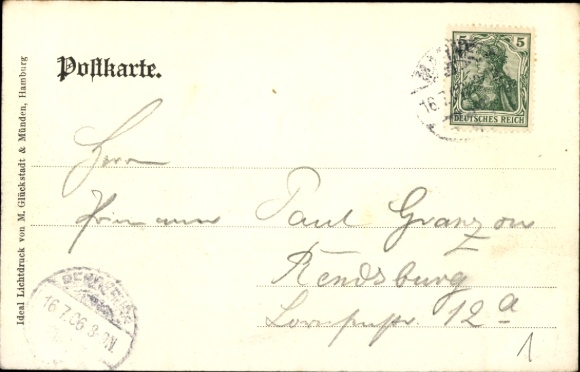 Postkarte.
5 5
DEUTSCHES REICH
16.7.
Herrn
Paul Granzow
Rendsburg
12a
16.7.06.
1
Ideal Lichtdruck von M. Glückstadt & Münden, Hamburg